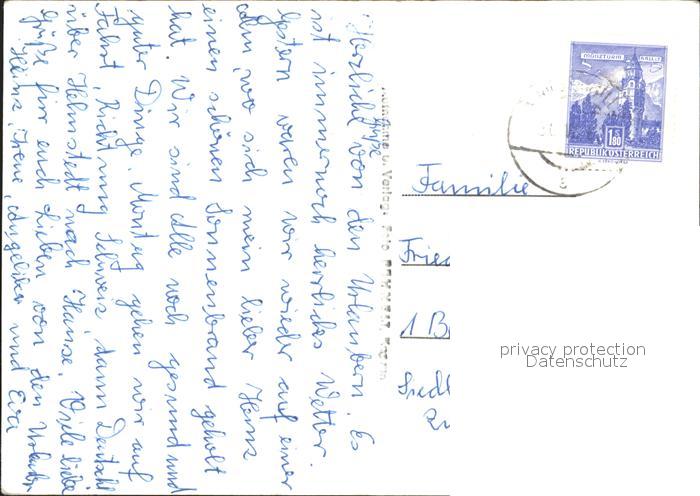 Herzliche Grüße von den Urlaubern. Es
ist immer noch herrliches Wetter.
Gestern waren wir wieder auf einer
Alm, wo sich mein lieber Heinz
einen schönen Sonnenbrand geholt
hat. Wir sind Alle noch gesund und
guter Dinge. Montag gehen wir auf
Fahrt, Richtung Schweiz dann Deutschl
über Helmstedt nach Hause. Viele liebe
Grüße für euch Lieben von den Urlaubern
Heinz, Irene, Angelika und Eva
u. Verlag:
MÜNZTURM HALL i. T.
1.80
REPUBLIK ÖSTERREICH
Familie
Fried
1 B
Siedl
privacy protection
Datenschutz